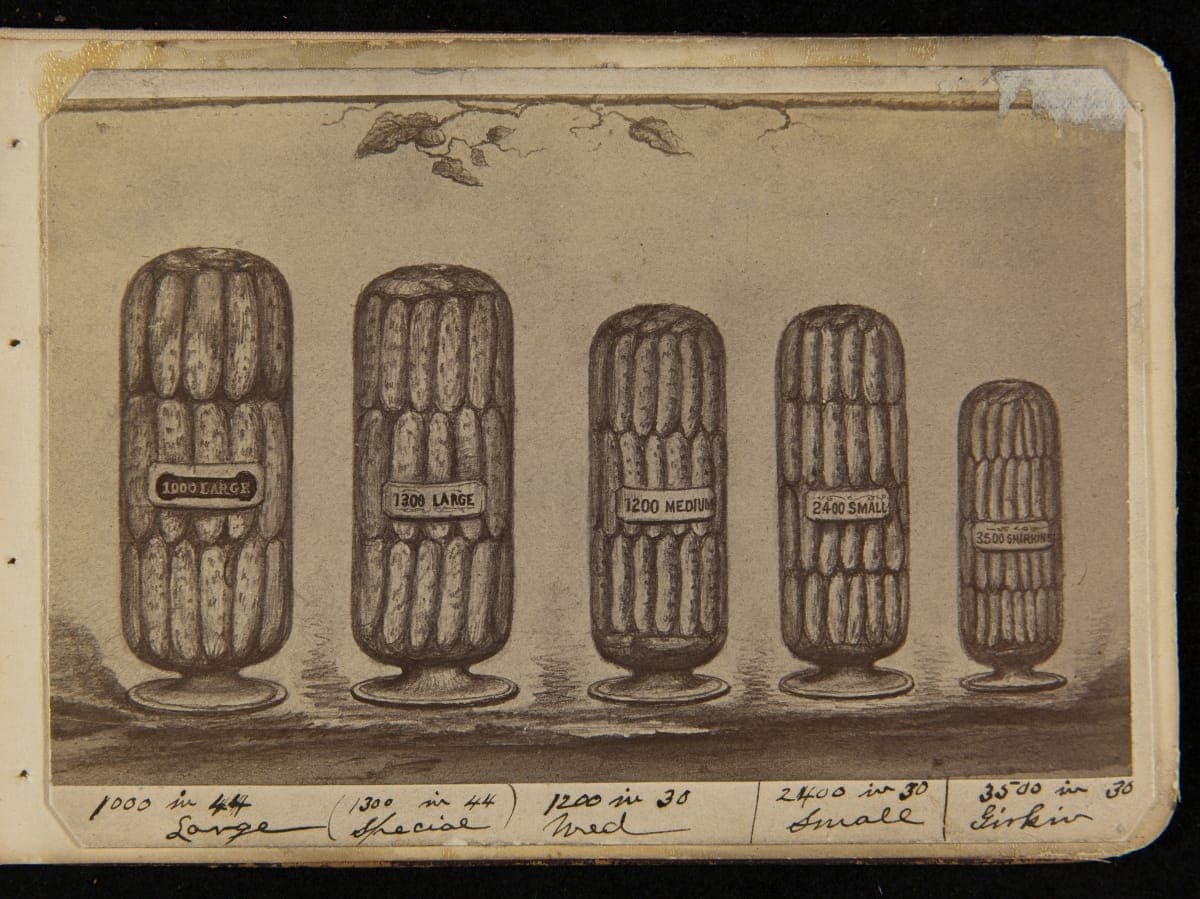 1000 LARGE
1300 LARGE
1200 MEDIUM
2400 SMALL
3500 GHIRKINS
1000 in 44
Large
(1300 in 44)
Special
1200 in 30
Med
2400 in 30
Small
3500 in 30
Girkin